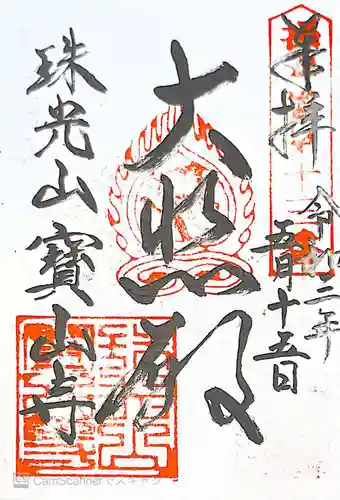 奉拝
令和二年
五月十五日
大悲殿
珠光山寳山寺
CamScannerでスキャン